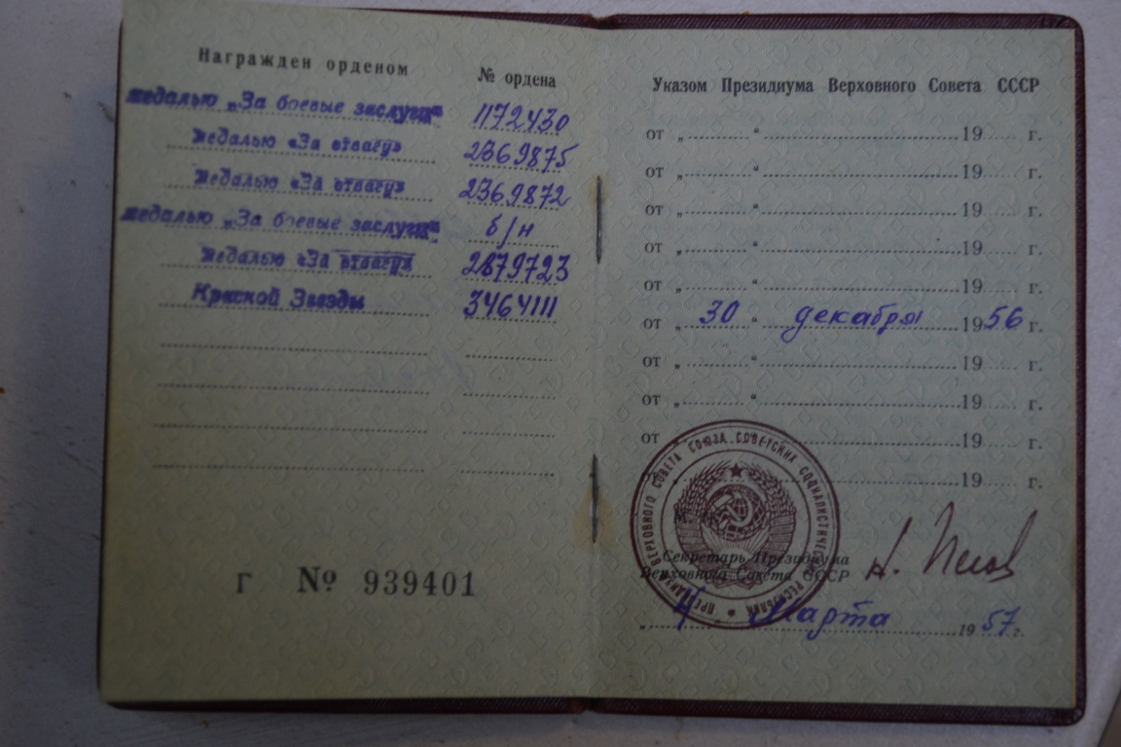 Награжден орденом № ордена
медалью „За боевые заслуги“ 1172430
Медалью «За отвагу» 2369875
Медалью «За отвагу» 2369872
медалью „За боевые заслуги“ б/н
Медалью «За отвагу» 2879723
Красной Звезды 3464111
Г № 939401
Указом Президиума Верховного Совета СССР
от „ “ 19 г.
от „ “ 19 г.
от „ “ 19 г.
от „ “ 19 г.
от „ “ 19 г.
от „ 30 “ декабря 1956 г.
от „ “ 19 г.
от „ “ 19 г.
от 19 г.
19 г.
ПРЕЗИДИУМ ВЕРХОВНОГО СОВЕТА СОЮЗА СОВЕТСКИХ СОЦИАЛИСТИЧЕСКИХ РЕСПУБЛИК
М.
Секретарь Президиума
Верховного Совета СССР
Марта 1957 г.